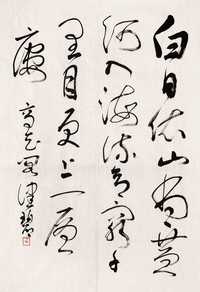 白日依山盡黄
河入海流欲窮千
里目更上一層
樓